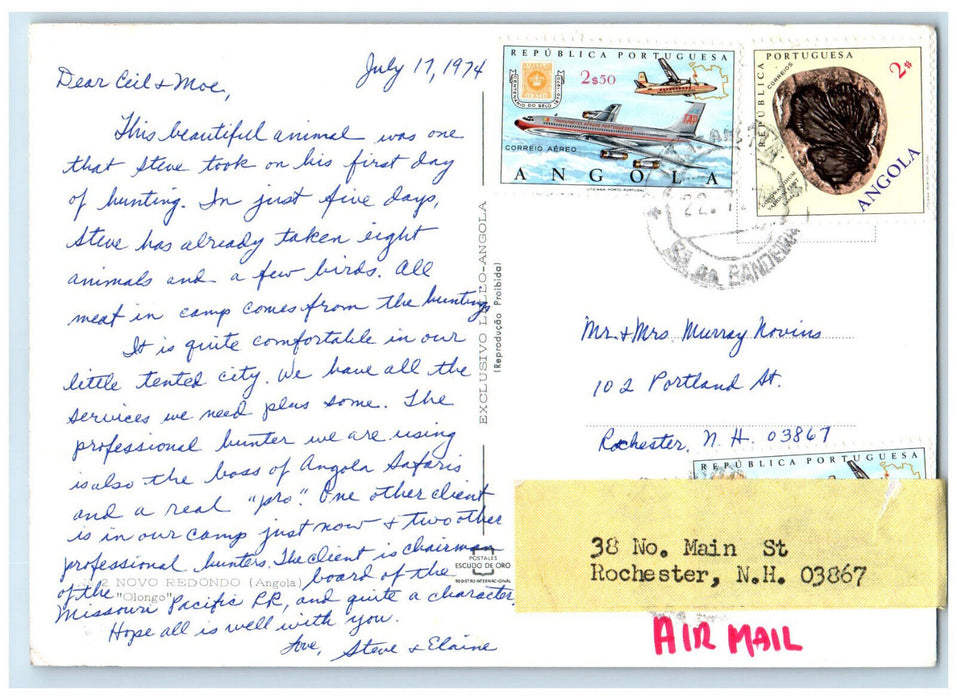 July 17, 1974
Dear Ceil & Moe,
This beautiful animal was one
that Steve took on his first day
of hunting. In just five days,
Steve has already taken eight
animals and a few birds. All
meat in camp comes from the hunting.
It is quite comfortable in our
little tented city. We have all the
services we need plus some. The
professional hunter we are using
is also the boss of Angola Safaris
and a real "pro". One other client
is in our camp just now & two other
professional hunters. The client is chairman
of the board of the
Missouri Pacific RR, and quite a character.
Hope all is well with you.
Love, Steve & Elaine
2 NOVO REDONDO (Angola)
"Olongo"
EXCLUSIVO LELLO-ANGOLA
(Reprodução Proibida)
POSTALES
ESCUDO DE ORO
REGISTRO INTERNACIONAL
REPÚBLICA PORTUGUESA
2$50
CENTENÁRIO DO SELO 1870-1970
TRANSPORTES AÉREOS PORTUGUESES
TAP
CORREIO AÉREO
ANGOLA
REPÚBLICA PORTUGUESA
CORREIOS
2$
ANGOLA
22.
SÁ da BANDEIRA
Mr. & Mrs. Murray Novins
102 Portland St.
Rochester, N.H. 03867
REPÚBLICA PORTUGUESA
38 No. Main St
Rochester, N.H. 03867
AIR MAIL